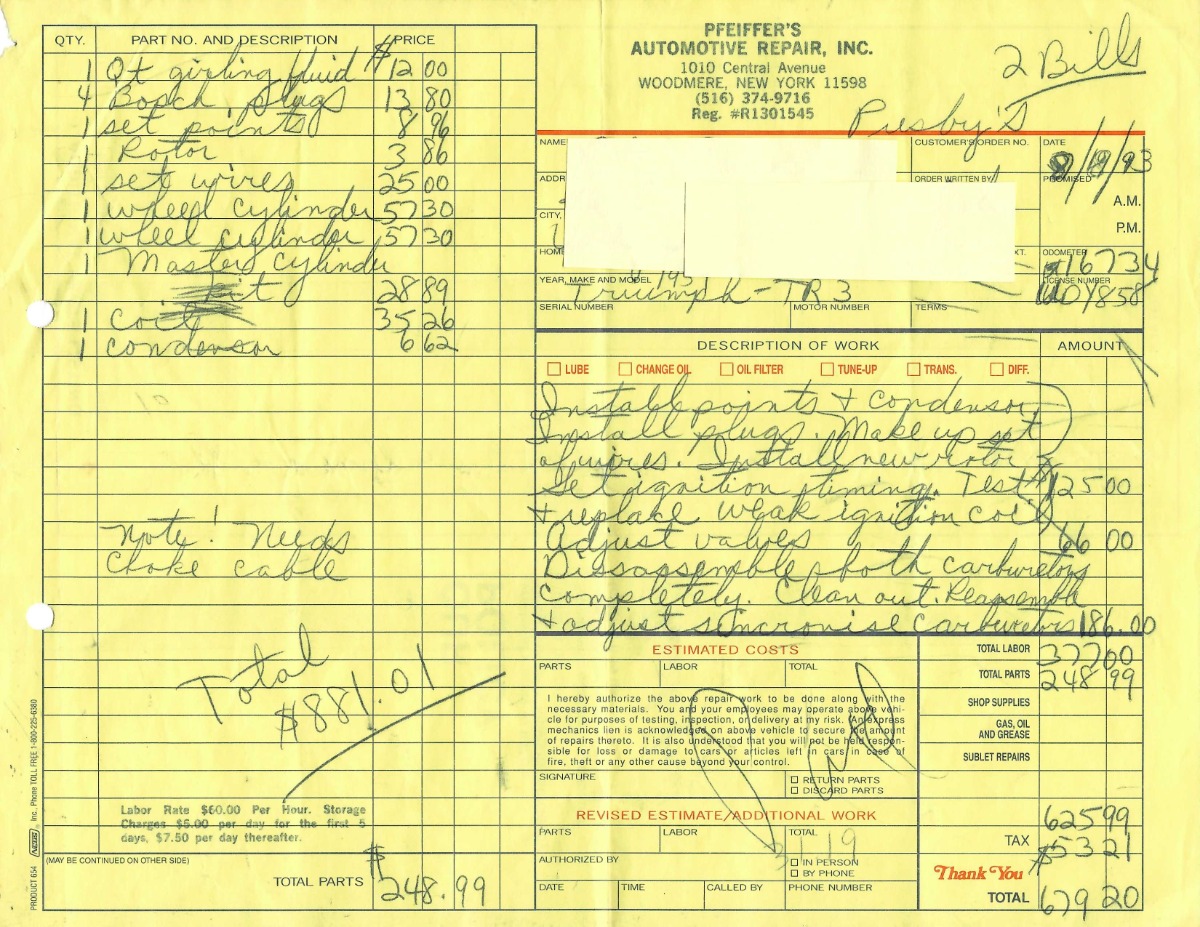 PFEIFFER'S
AUTOMOTIVE REPAIR, INC.
1010 Central Avenue
WOODMERE, NEW YORK 11598
(516) 374-9716
Reg. #R1301545
2 Bills
Presby's
QTY. PART NO. AND DESCRIPTION PRICE
1 Qt girling fluid $12 00
4 Bosch plugs 13 80
1 set points 8 96
1 Rotor 3 86
1 set wires 25 00
1 wheel cylinder 57 30
1 wheel cylinder 57 30
1 Master cylinder
kit 28 89
1 Coil 35 26
1 condensor 6 62
Note! Needs
Choke cable
Total
$881.01
Labor Rate $60.00 Per Hour. Storage
Charges $5.00 per day for the first 5
days, $7.50 per day thereafter.
(MAY BE CONTINUED ON OTHER SIDE)
TOTAL PARTS $248.99
PRODUCT 654 NEBS Inc. Phone TOLL FREE 1-800-225-6380
NAME CUSTOMER'S ORDER NO. DATE
/93
ADDR ORDER WRITTEN BY PROMISED
A.M.
CITY, P.M.
HOM XT. ODOMETER
16734
YEAR, MAKE AND MODEL LICENSE NUMBER
Triumph - TR3 858
SERIAL NUMBER MOTOR NUMBER TERMS
DESCRIPTION OF WORK AMOUNT
LUBE CHANGE OIL OIL FILTER TUNE-UP TRANS. DIFF.
Install points + condensor,
Install plugs. Make up set
of wires. Install new rotor
Set ignition timing. Test $125 00
+ replace weak ignition coil
Adjust valves 66 00
Dissassemble both carburetors
completely. Clean out. Reassemble
+ adjust sincronise carburetors 186.00
ESTIMATED COSTS
PARTS LABOR TOTAL
I hereby authorize the above repair work to be done along with the
necessary materials. You and your employees may operate above vehi-
cle for purposes of testing, inspection, or delivery at my risk. An express
mechanics lien is acknowledged on above vehicle to secure the amount
of repairs thereto. It is also understood that you will not be held respon-
sible for loss or damage to cars or articles left in cars in case of
fire, theft or any other cause beyond your control.
SIGNATURE
RETURN PARTS
DISCARD PARTS
Paid
REVISED ESTIMATE/ADDITIONAL WORK
PARTS LABOR TOTAL
AUTHORIZED BY
IN PERSON
BY PHONE
DATE TIME CALLED BY PHONE NUMBER
TOTAL LABOR 377 00
TOTAL PARTS 248 99
SHOP SUPPLIES
GAS, OIL
AND GREASE
SUBLET REPAIRS
625 99
TAX $53 21
Thank You
TOTAL 679 20